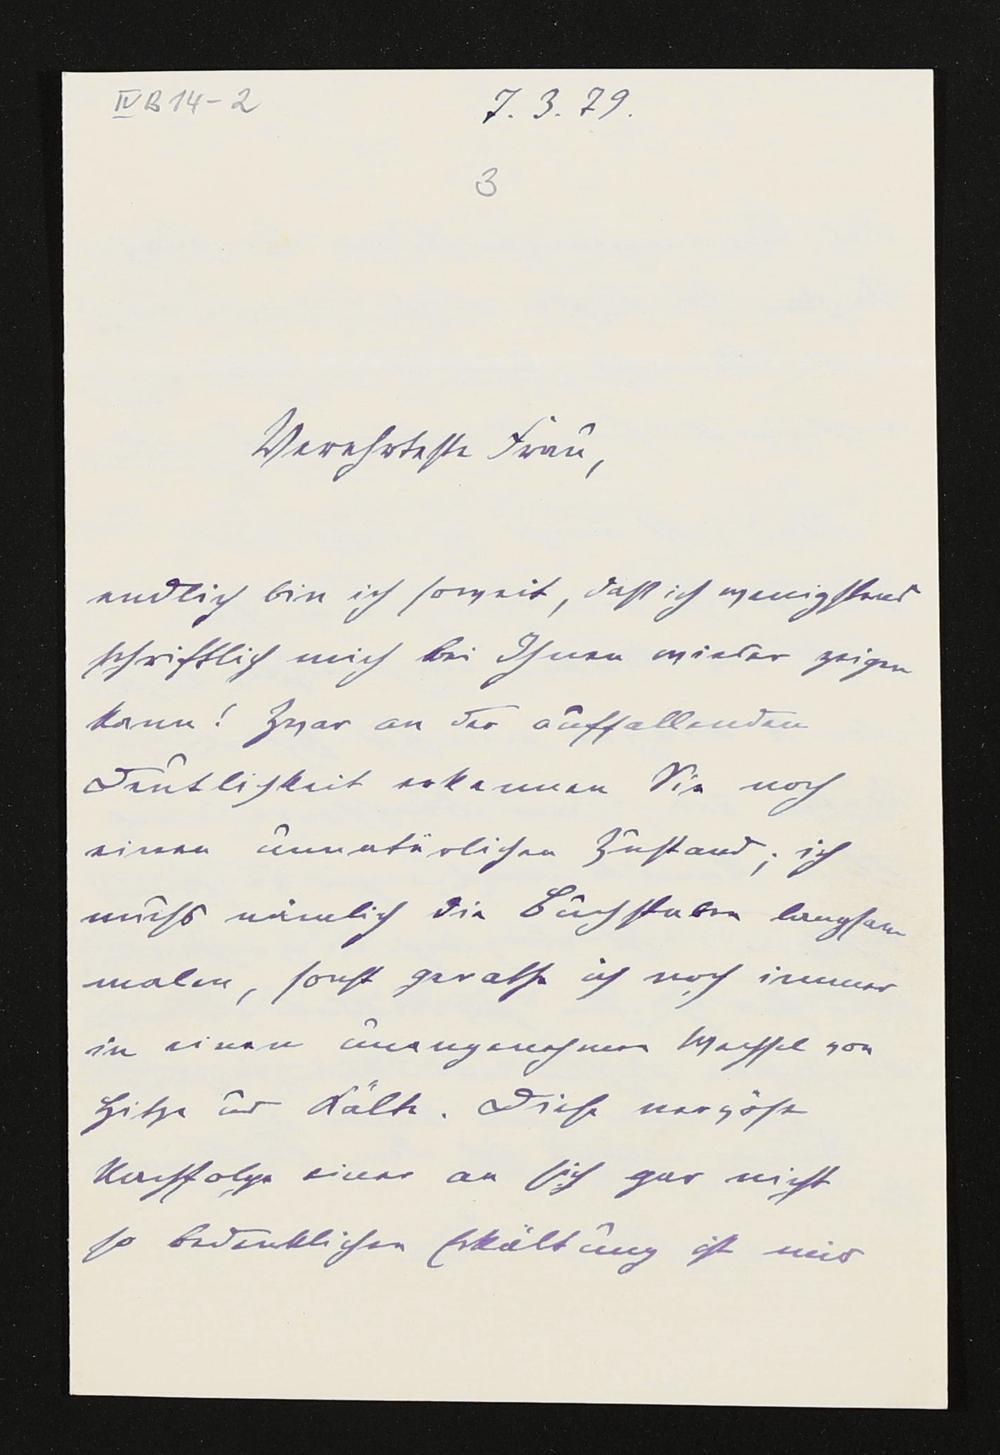 IV B 14-2
7. 3. 79.
3
Verehrteste Frau,
endlich bin ich soweit, daß ich wenigstens
schriftlich mich bei Ihnen wieder zeigen
kann! Zwar an der auffallenden
Deutlichkeit erkennen Sie noch
einen unnatürlichen Zustand; ich
muss nämlich die Buchstaben langsam
malen, sonst gerathe ich noch immer
in einen unangenehmen Wechsel von
Hitze und Kälte. Diese nervöse
Nachfolge einer an sich gar nicht
so bedenklichen Erkältung ist mir